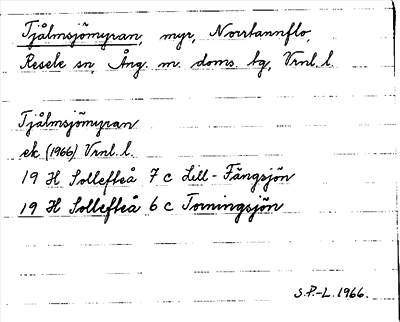 Tjålmsjömyran, myr, Norrtannflo,
Resele sn, Ång. m. doms. tg, Vrnl. l.
Tjålmsjömyran
ek. (1966) Vrnl. l.
19 H Sollefteå 7 c Lill-Fängsjön
19 H Sollefteå 6 c Torringsjön
S.P.-L. 1966.